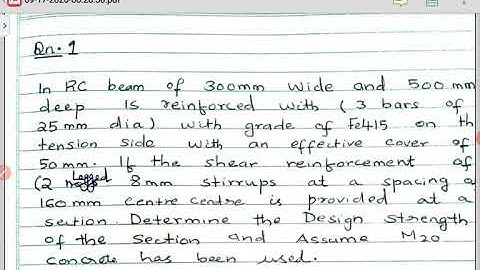 Qn. 1
In RC beam of 300mm wide and 500 mm
deep is reinforced with (3 bars of
25 mm dia) with grade of Fe415 on th
tension side with an effective cover of
50mm. If the shear reinforcement of
(2 Legged 8mm stirrups at a spacing a
160 mm centre centre is provided at a
section. Determine the Design strength
of the section and Assume M20
concrete has been used.